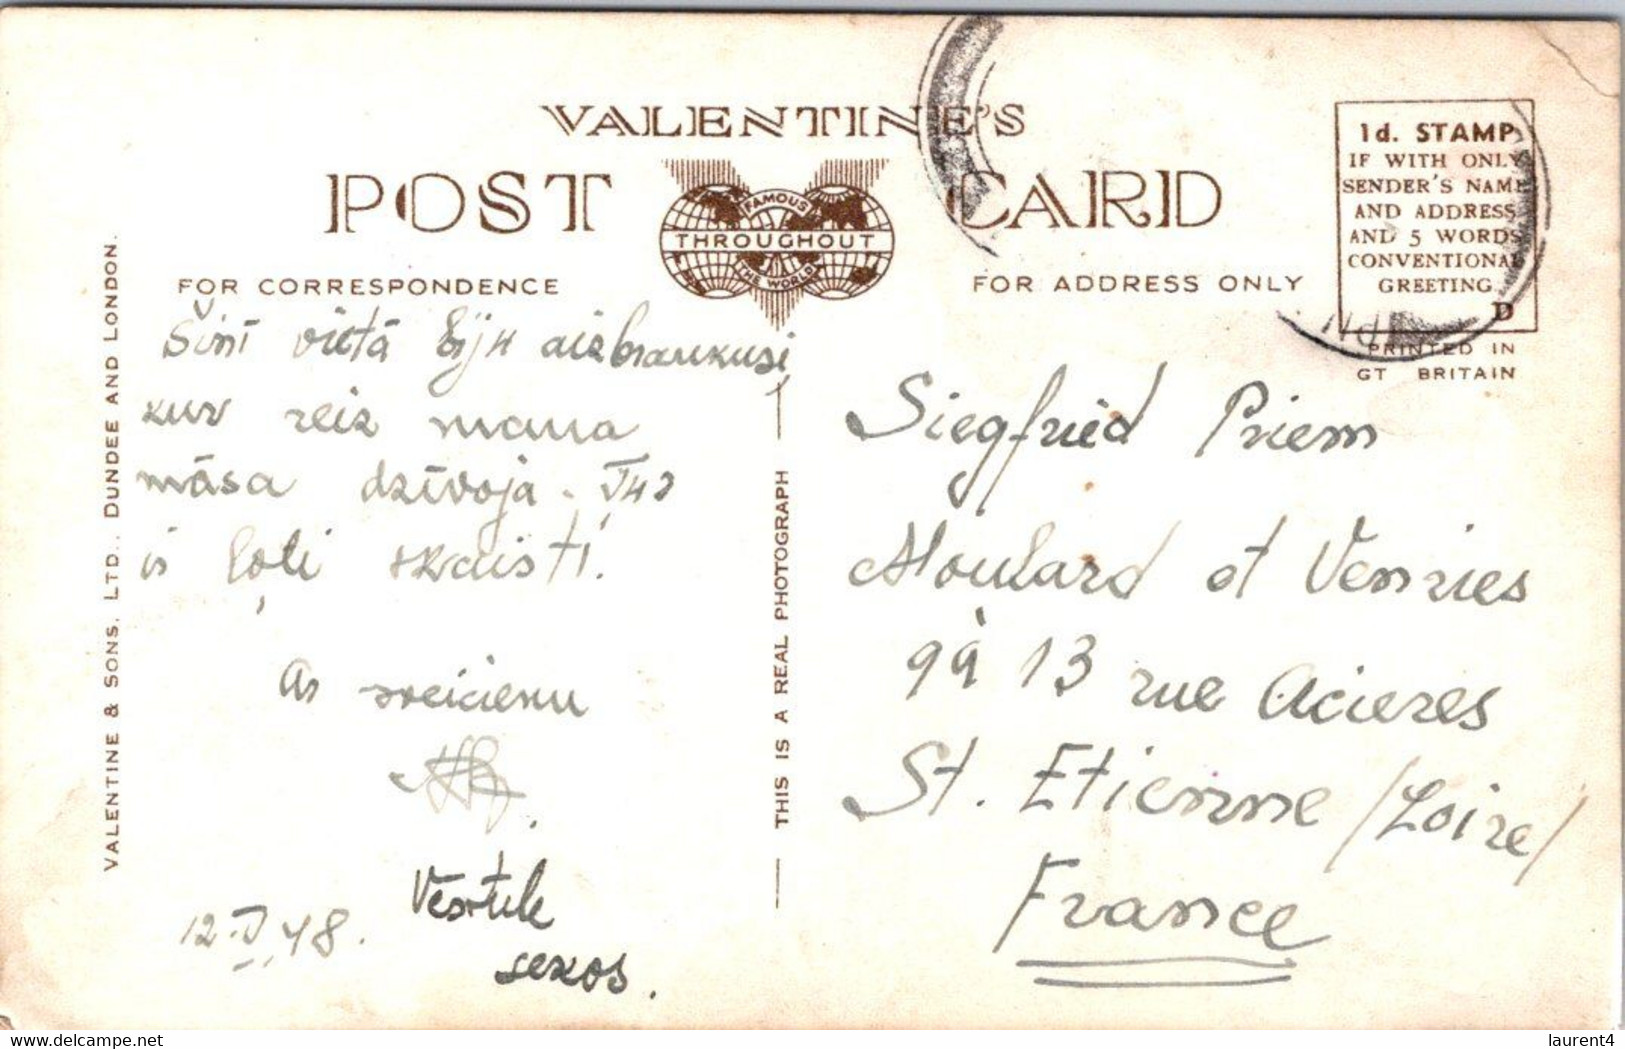 VALENTINE'S
POST CARD
FAMOUS
THROUGHOUT
THE WORLD
FOR CORRESPONDENCE
FOR ADDRESS ONLY
1d. STAMP
IF WITH ONLY
SENDER'S NAME
AND ADDRESS
AND 5 WORDS
CONVENTIONAL
GREETING.
D
PRINTED IN
GT BRITAIN
VALENTINE & SONS, LTD., DUNDEE AND LONDON.
THIS IS A REAL PHOTOGRAPH
Šinī vietā biju aizbraukusi,
kur reiz mana
māsa dzīvoja.
ir ļoti skaisti.
Ar sveicienu
Vēstule
sekos.
12.V.48.
Siegfried Priem
Moulard et Venries
9à 13 rue Acieres
St. Etienne /Loire/
France
laurent4
delcampe.net